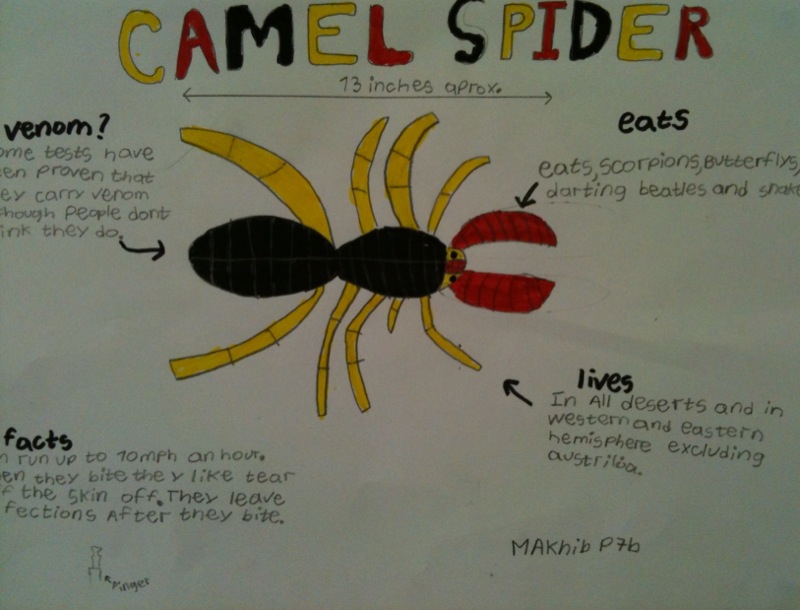 CAMEL SPIDER
13 inches aprox.
venom?
ome tests have
en proven that
ey carry venom
though people dont
ink they do.
eats
eats, scorpions, Butterflys,
darting beatles and snak
lives
In All deserts and in
western and eastern
hemisphere excluding
austrilia.
facts
n run up to 10mph an hour.
en they bite they like tear
f the skin off. They leave
fections After they bite.
Pinger
MAKhib P7b